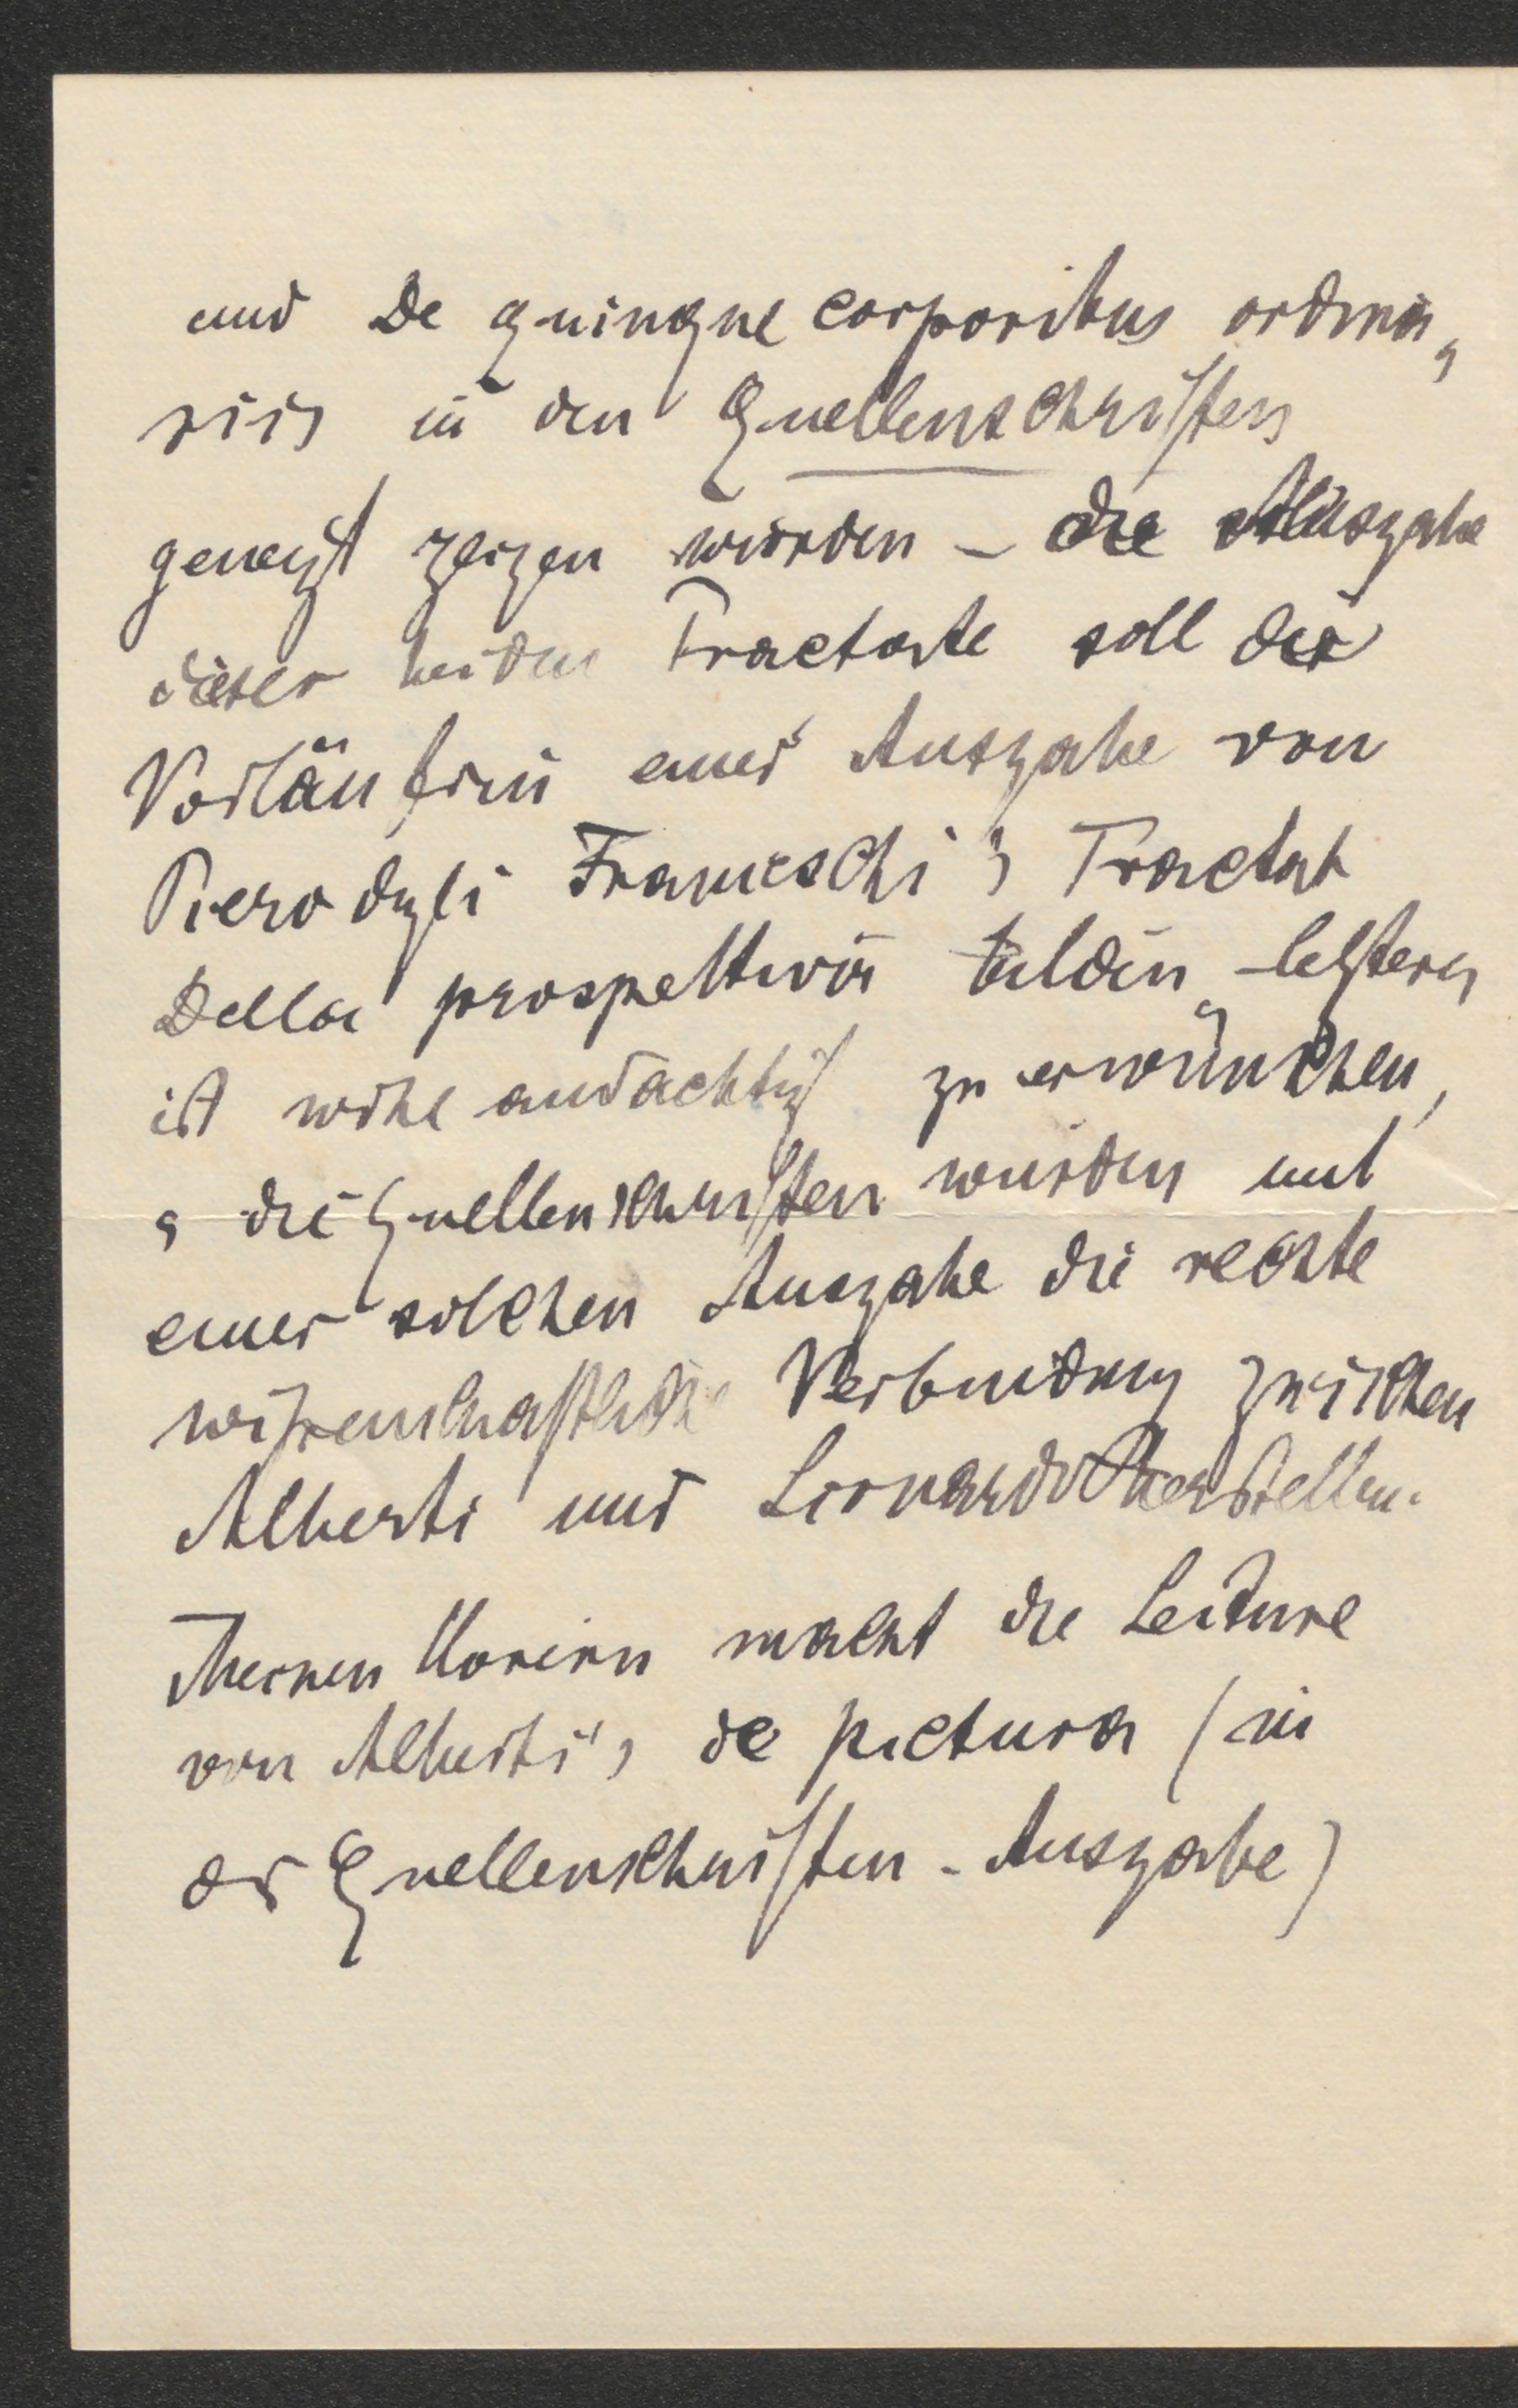 und De quinque corporibus ordina„
riis in den Quellenschriften
geneigt zeigen würden – die Ausgabe
dieser beiden Tractate soll die
Vorläuferin einer Ausgabe von
Piero degli Franceschi's Tractat
Della prospettiva bilden, letztere
ist wohl andächtigst zu erwünschen,
die Quellenschriften würden mit
einer solchen Ausgabe die rechte
wissenschaftliche Verbindung zwischen
Alberti und Lionardo herstellen.
Meinen Hörern macht die Lectüre
von Alberti's de pictura (in
der Quellenschriften-Ausgabe)